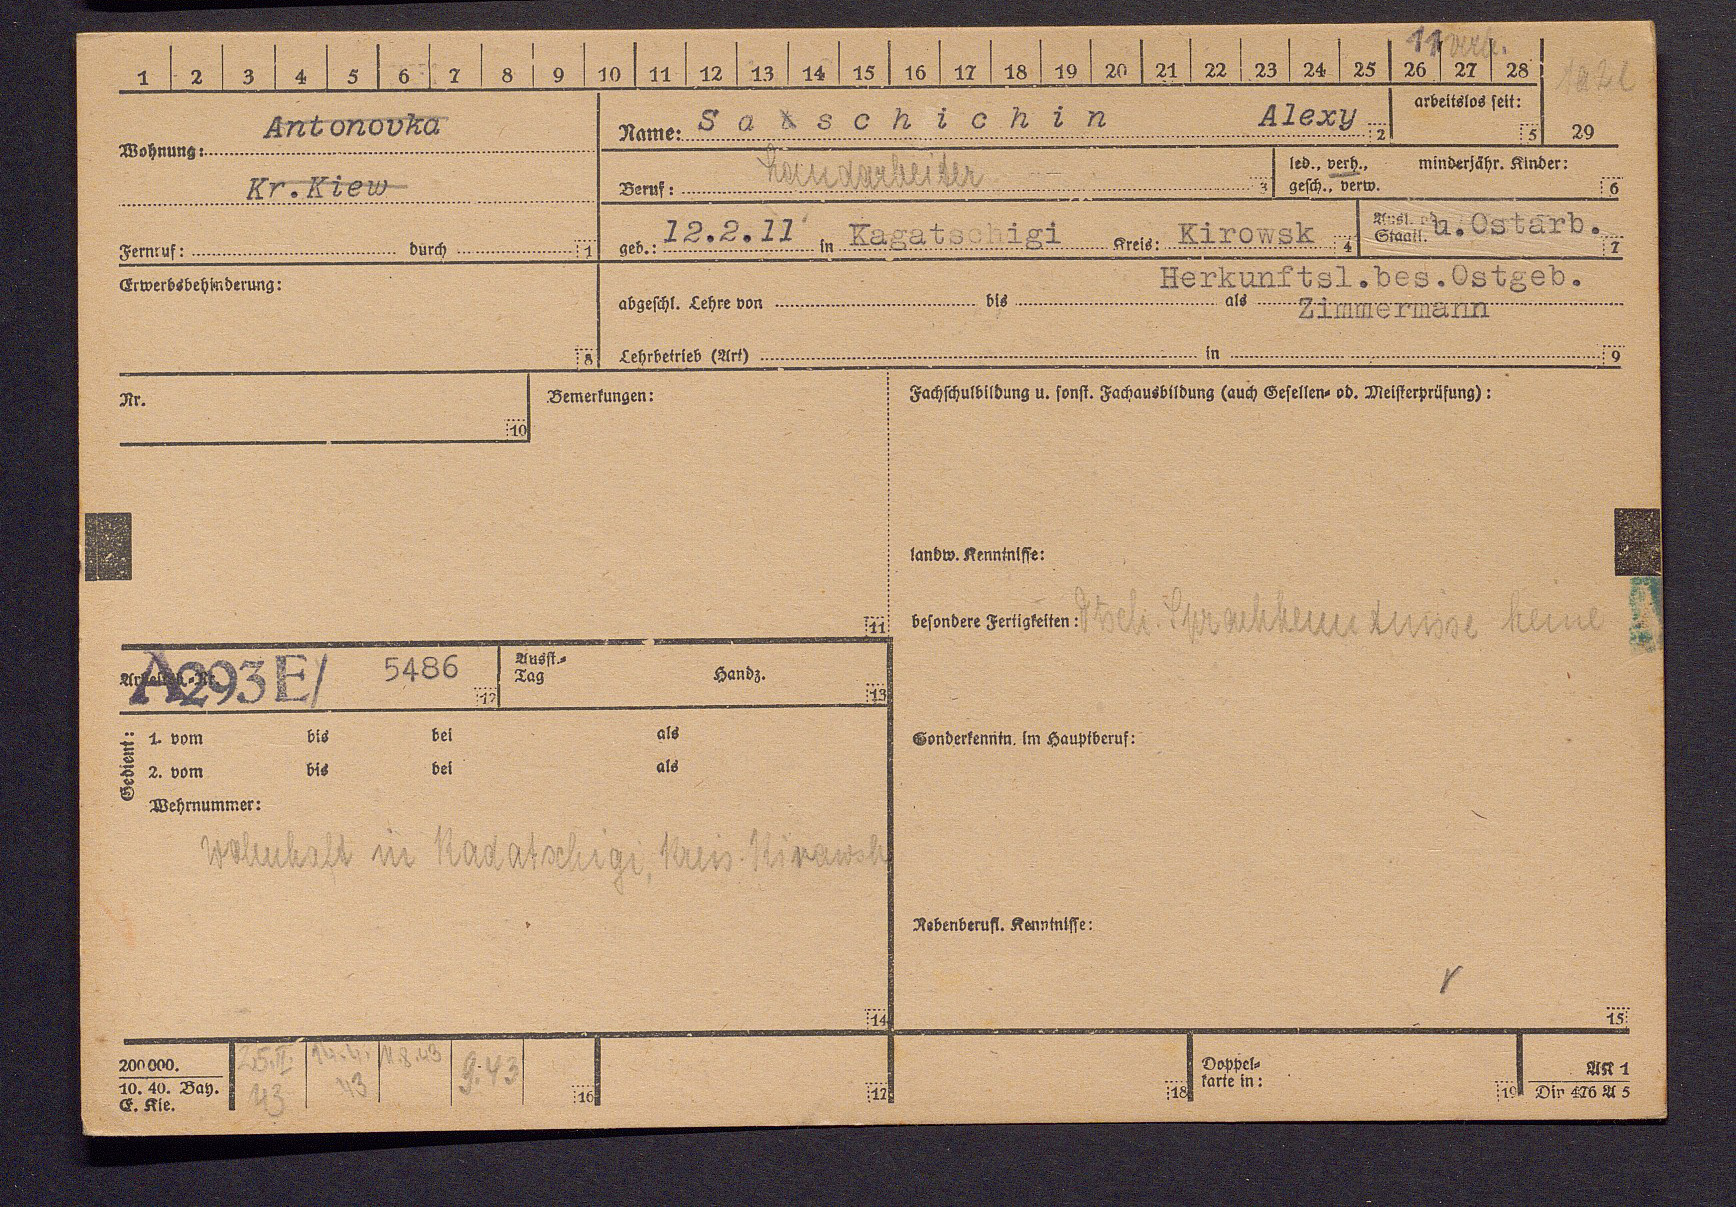 11 verh.
1 2 3 4 5 6 7 8 9 10 11 12 13 14 15 16 17 18 19 20 21 22 23 24 25 26 27 28
Wohnung: Antonovka
Kr. Kiew
Fernruf: durch 1
Name: Saxschichin Alexy 2
arbeitslos seit: 5
29
Beruf: Landarbeiter 3
led., verh., gesch., verw.
minderjähr. Kinder: 6
geb.: 12.2.11 in Kagatschigi Kreis: Kirowsk 4
Ausl. od. Staatl. u. Ostarb. 7
Herkunftsl.bes.Ostgeb.
Erwerbsbehinderung: 8
abgeschl. Lehre von bis als Zimmermann
Lehrbetrieb (Art) in 9
Nr. 10
Bemerkungen: 11
Fachschulbildung u. sonst. Fachausbildung (auch Gesellen- od. Meisterprüfung):
landw. Kenntnisse:
besondere Fertigkeiten: Dtsch. Sprachkenntnisse keine
A293E/ 5486 12
Ausst.-Tag Handz. 13
Gedient: 1. vom bis bei als
2. vom bis bei als
Wehrnummer:
Wohnhaft in Kadatschigi, Kreis Kirawsk
14
Sonderkenntn. im Hauptberuf:
Nebenberufl. Kenntnisse:
15
200 000.
10. 40. Bay.
E. Kle.
25.II 43
14.4. 43
11.8.43
9.43
16
17
18
Doppelkarte in: 19
AK 1
Din 476 A 5